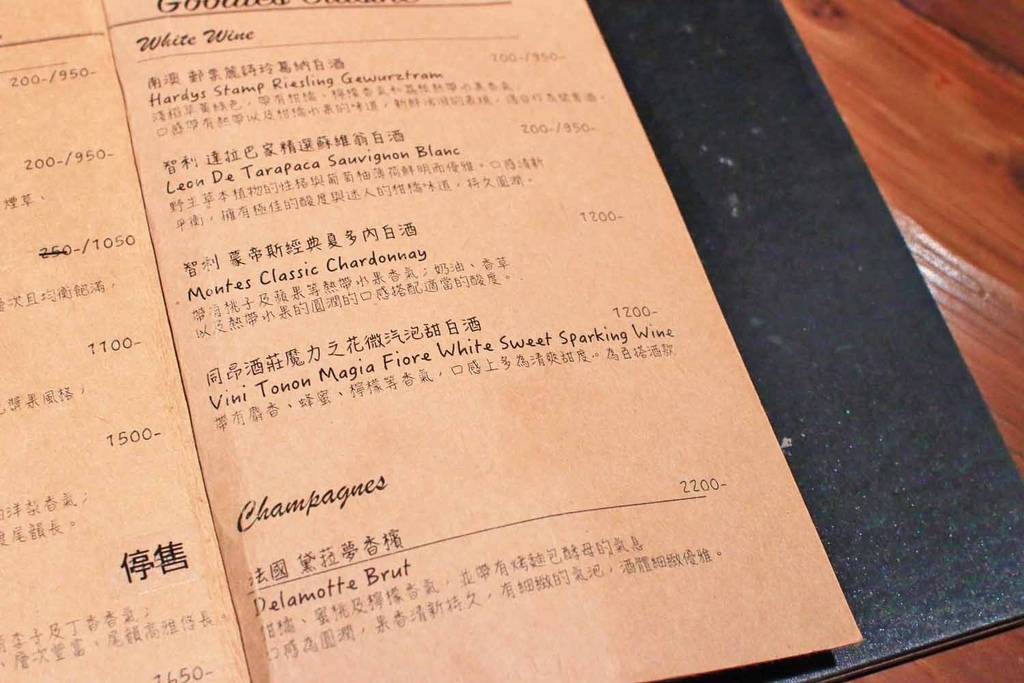 200-/950-
200-/950-
煙草、
250-/1050
層次且均衡飽滿，
1100-
漿果風格，
1500-
洋梨香氣；
尾韻長。
停售
李子及丁香香氣；
層次豐富、尾韻高雅悠長。
1650-
Goodies Cuisine
White Wine
200-/950-
南澳 郵票麗詩玲葛納白酒
Hardys Stamp Riesling Gewurztram
口感帶有熱帶以及柑橘水果的味道，新鮮活潑的表現，適合作為開胃酒。
200-/950-
智利 達拉巴家精選蘇維翁白酒
Leon De Tarapaca Sauvignon Blanc
野生草本植物的性格與葡萄柚薄荷鮮明而優雅。口感清新
平衡，擁有極佳的酸度與迷人的柑橘味道，持久圓潤。
1200-
智利 蒙帝斯經典夏多內白酒
Montes Classic Chardonnay
帶有桃子及蘋果等熱帶水果香氣；奶油、香草
以及熱帶水果的圓潤的口感搭配適當的酸度。
1200-
同昂酒莊魔力之花微汽泡甜白酒
Vini Tonon Magia Fiore White Sweet Sparking Wine
帶有麝香、蜂蜜、檸檬等香氣，口感上多為清爽甜度。為百搭酒款
Champagnes
2200-
法國 黛菈夢香檳
Delamotte Brut
柑橘、蜜桃及檸檬香氣，並帶有烤麵包酵母的氣息
口感為圓潤，果香清新持久，有細緻的氣泡，酒體細緻優雅。